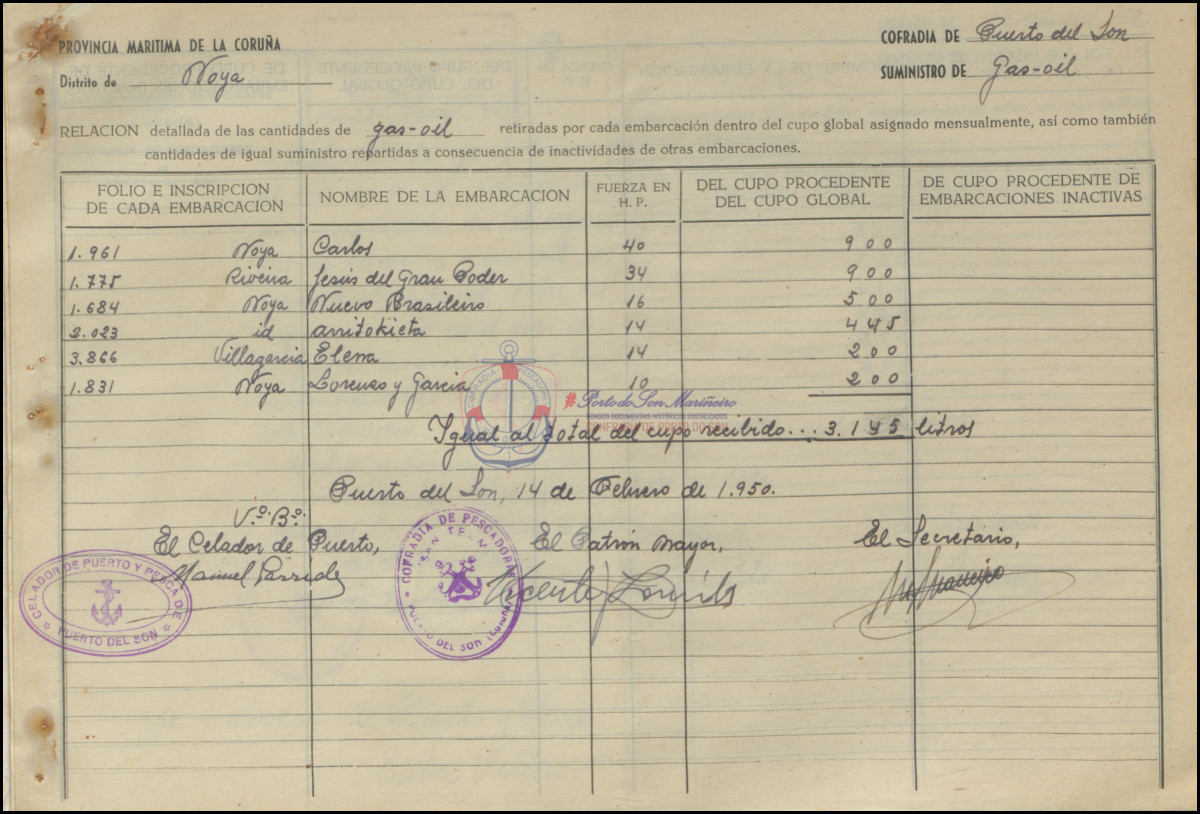 PROVINCIA MARITIMA DE LA CORUÑA
Distrito de Noya
COFRADIA DE Puerto del Son
SUMINISTRO DE Gas-oil
RELACION detallada de las cantidades de gas-oil retiradas por cada embarcación dentro del cupo global asignado mensualmente, así como también
cantidades de igual suministro repartidas a consecuencia de inactividades de otras embarcaciones.
FOLIO E INSCRIPCION DE CADA EMBARCACION NOMBRE DE LA EMBARCACION FUERZA EN H. P. DEL CUPO PROCEDENTE DEL CUPO GLOBAL DE CUPO PROCEDENTE DE EMBARCACIONES INACTIVAS
1.961 Noya Carlos 40 900
1.775 Riveira Jesús del Gran Poder 34 900
1.684 Noya Nuevo Brasileiro 16 500
2.023 id arritokieta 14 445
3.866 Villagarcia Elena 14 200
1.831 Noya Lorenzo y Garcia 10 200
Igual al total del cupo recibido... 3.145 litros
Puerto del Son, 14 de Febrero de 1.950.
V.º B.º:
El Celador de Puerto, El Patrón Mayor, El Secretario,
Manuel
Vicente
CELADOR DE PUERTO Y PESCA DE
PUERTO DEL SON
COFRADIA DE PESCADORES
SAN TELMO
PUERTO DEL SON (Coruña)
COFRADIA PESCADORES
#Porto do Son Mariñeiro
FONDOS DOCUMENTAIS HISTÓRICOS DIXITALIZADOS
CONFRARIA DE PORTO DO SON